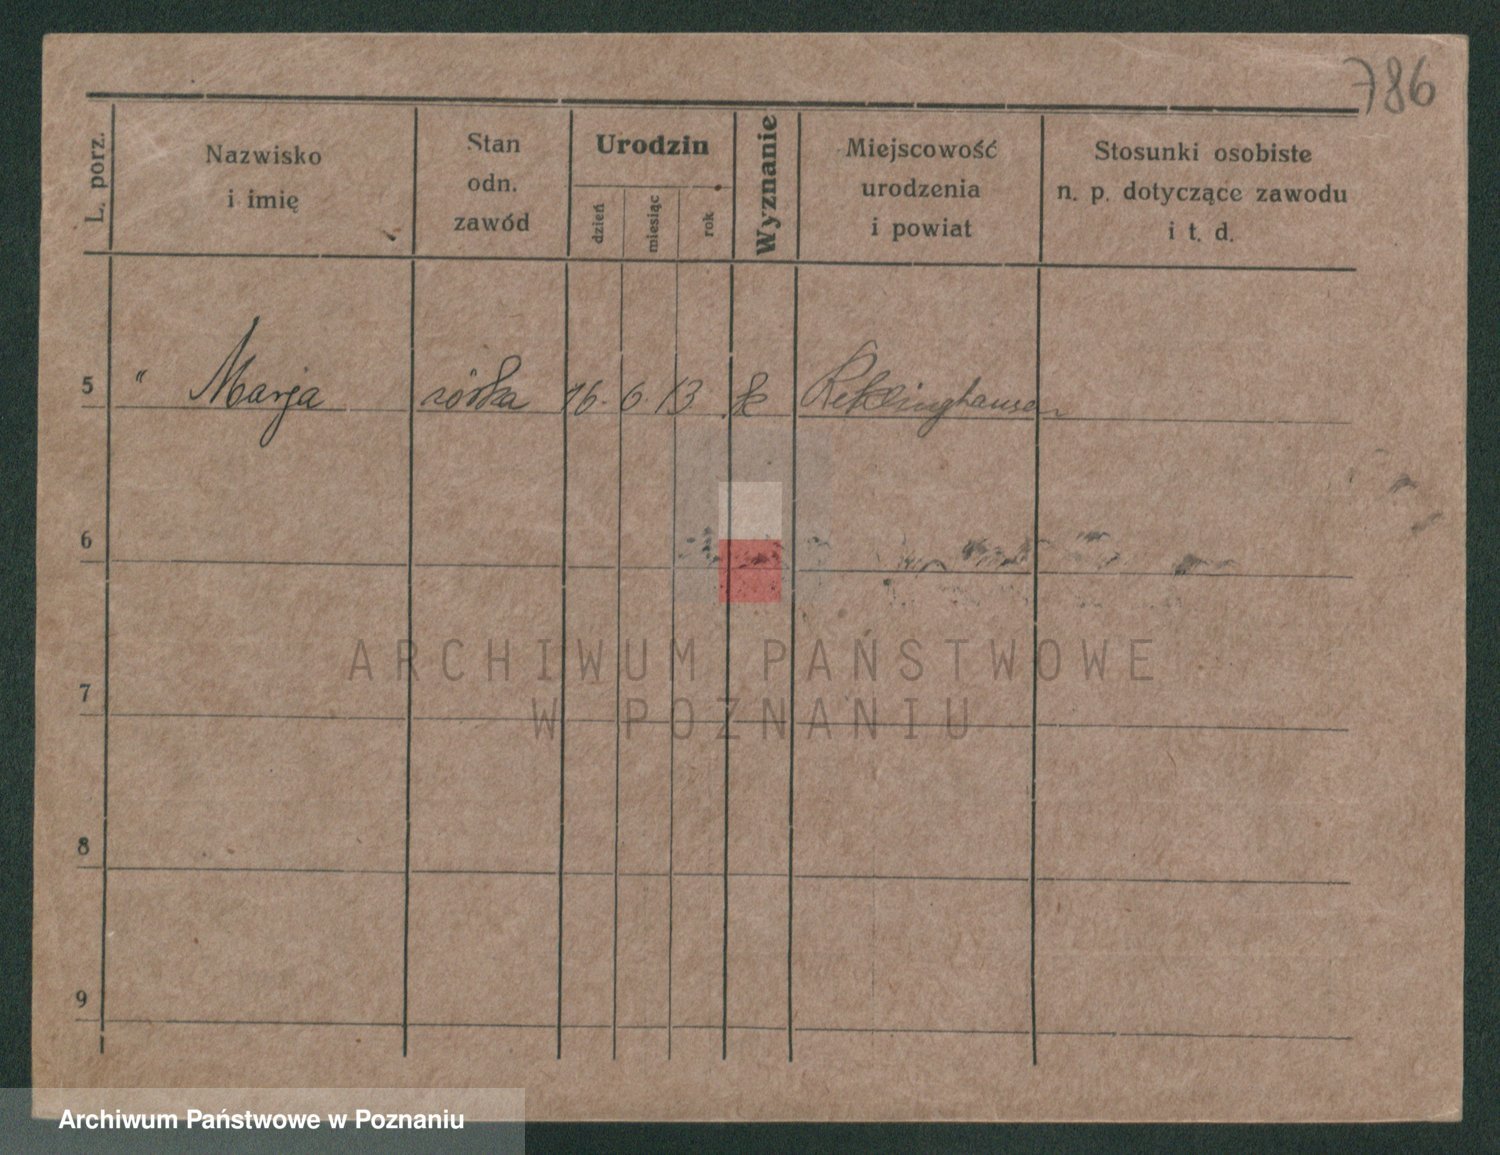 786
L. porz.
Nazwisko
i imię
Stan
odn.
zawód
Urodzin
dzień
miesiąc
rok
Wyznanie
Miejscowość
urodzenia
i powiat
Stosunki osobiste
n. p. dotyczące zawodu
i t. d.
5 " Marja córka 16. 6. 13 k Reklinghausen
6
7
8
9
ARCHIWUM PAŃSTWOWE
W POZNANIU
Archiwum Państwowe w Poznaniu